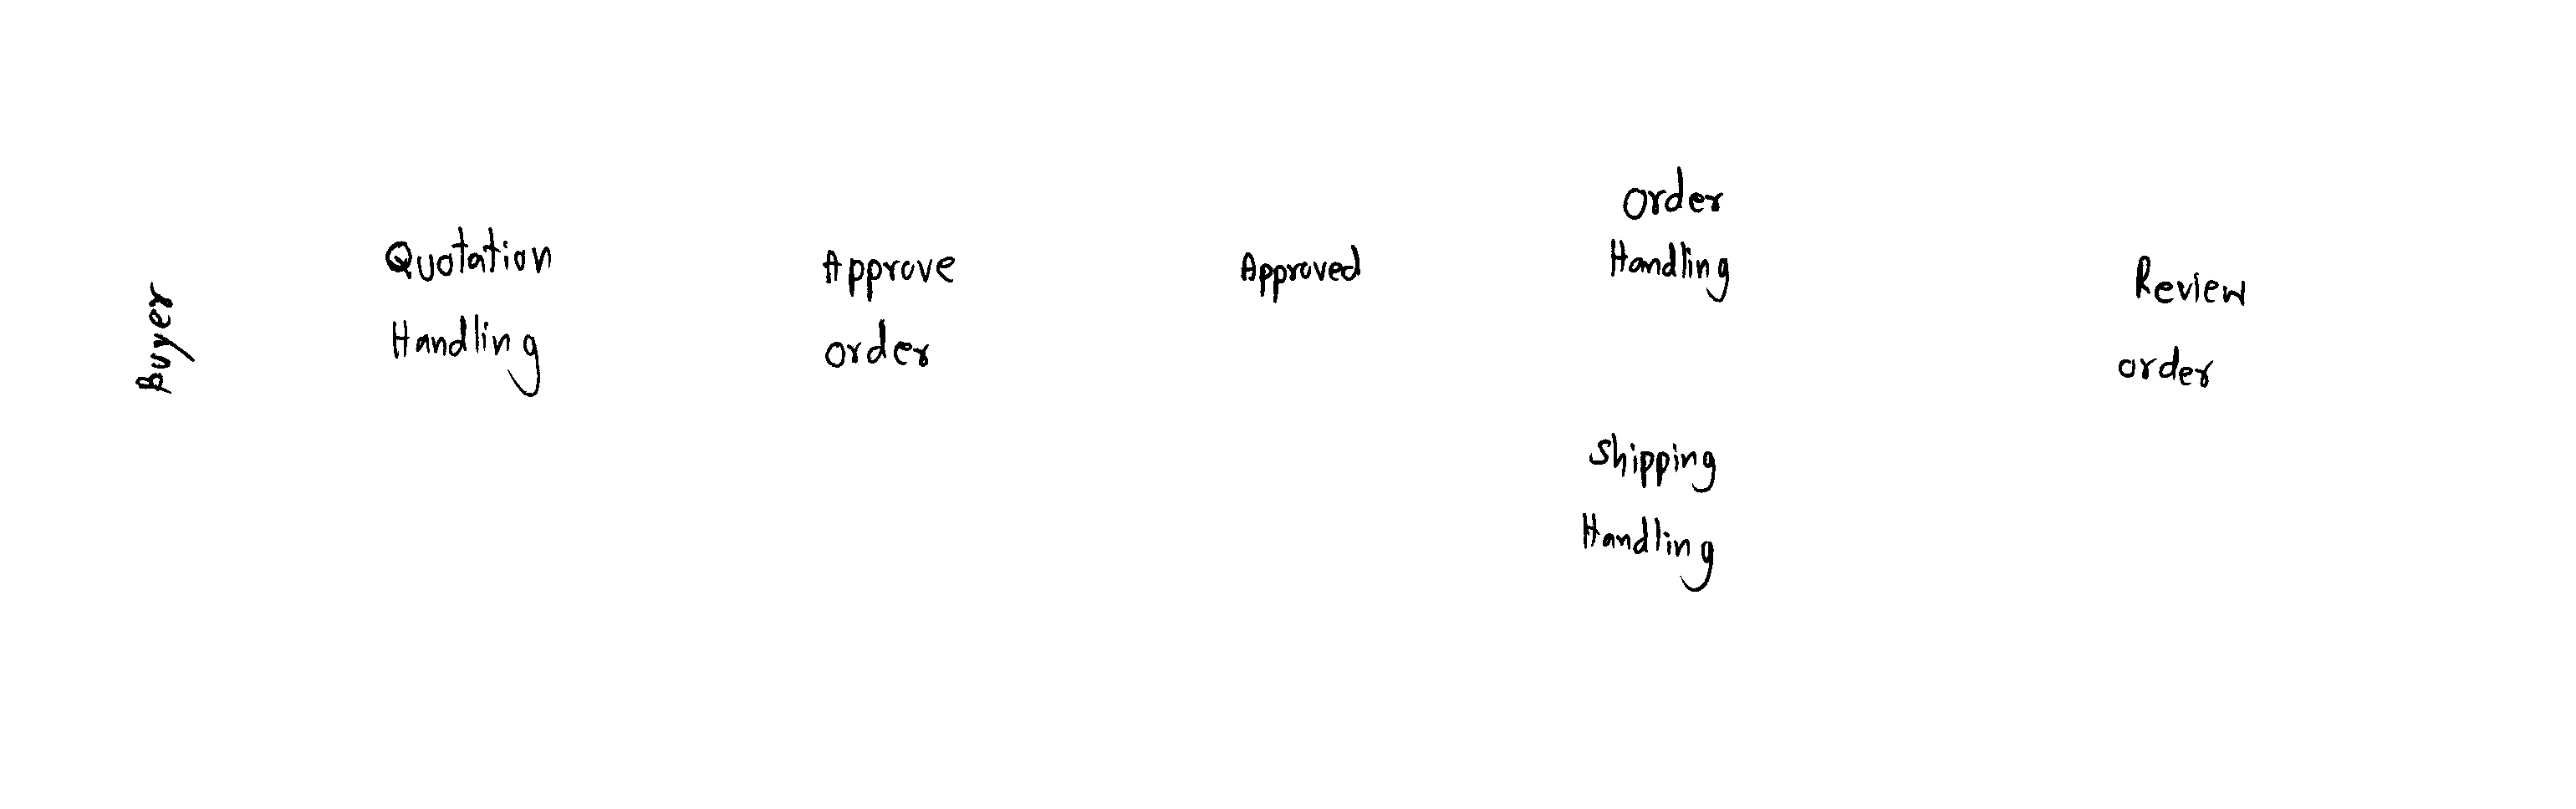 Buyer
Quotation
Handling
Approve
order
Approved
order
Handling
Shipping
Handling
Review
order